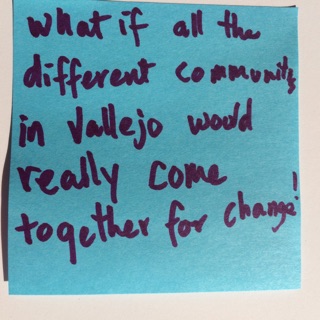 What if all the
different community
in Vallejo would
really come
together for change!